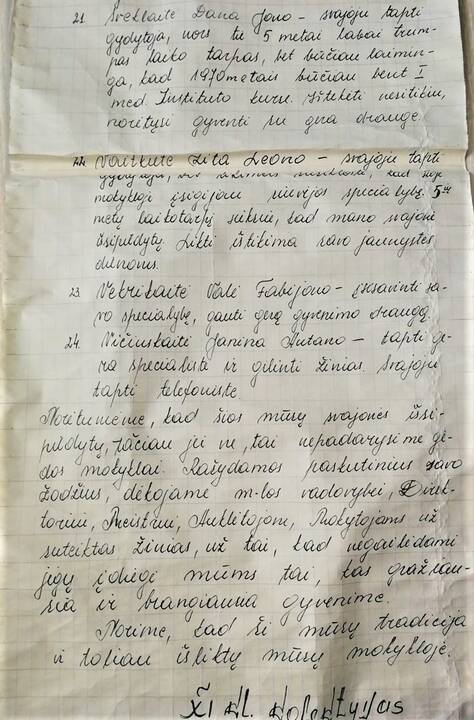 21. Sveklaitė Dana Jono - svajoju tapti
gydytoja, nors tie 5 metai labai trum-
pas laiko tarpas, bet būčiau laimin-
ga, kad 1970 metais būčiau bent I
med. Instituto kurse. Ištekėti nesitikiu,
norėtųsi gyventi su gera drauge.
22. Vaitkutė Zita Leono - svajoju tapti
gydytoja,
mokykloje įsigijau siuvėjos specialybę. 5-ių
metų laikotarpį sieksiu, kad mano svajonė
išsipildytų. Likti ištikima savo jaunystės
dienoms.
23. Vetrikaitė Valė Fabijono - įsisavinti sa-
vo specialybę, gauti gerą gyvenimo draugą.
24. Vičiuskaitė Janina Antano - tapti ge-
ra specialiste ir gilinti žinias. Svajoju
tapti telefoniste.
Norėtumėme, kad šios mūsų svajonės išsi-
pildytų, tačiau jei ne, tai nepadarysime gė-
dos mokyklai. Rašydamos paskutinius savo
žodžius, dėkojame m-los vadovybei, Direk-
toriui, Meistrui, Auklėtojom, Mokytojams už
suteiktas žinias, už tai, kad negailėdami
jėgų įdiegė mums tai, kas gražiau-
sia ir brangiausia gyvenime.
Norime, kad ši mūsų tradicija
ir toliau išliktų mūsų mokykloje.
XI kl. kolektyvas